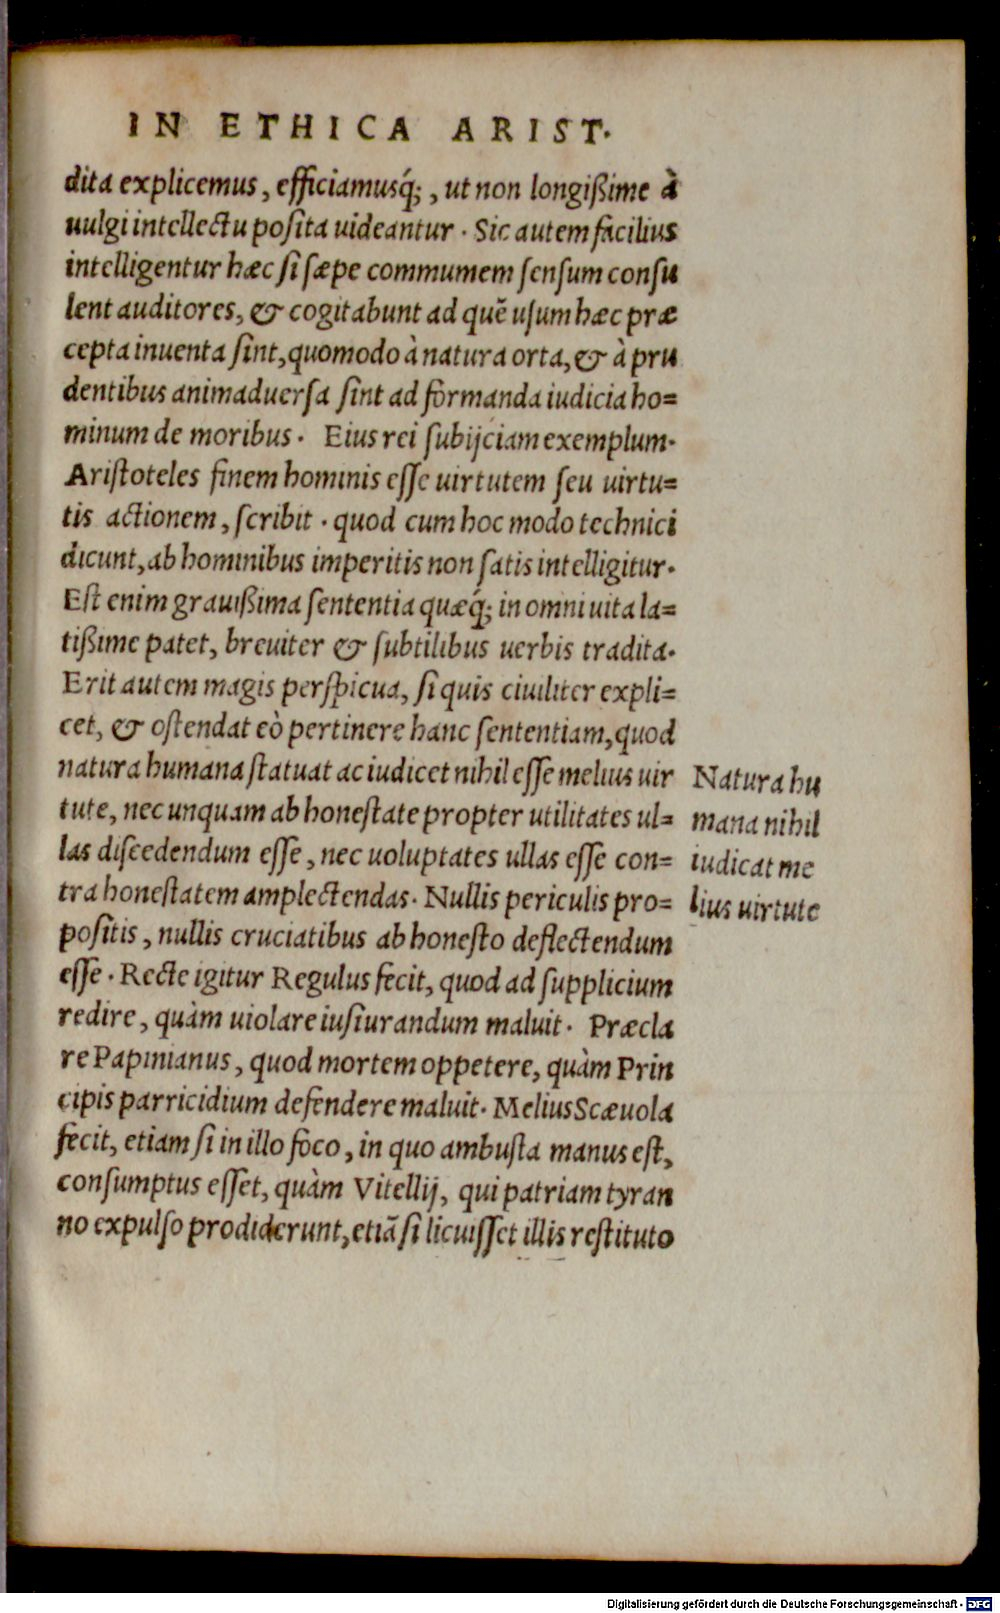 IN ETHICA ARIST.
dita explicemus, efficiamusq́;, ut non longißime à
uulgi intellectu posita uideantur. Sic autem facilius
intelligentur hæc si sæpe commumem sensum consu
lent auditores, & cogitabunt ad quẽ usum hæc præ
cepta inuenta sint, quomodo à natura orta, & à pru
dentibus animaduersa sint ad formanda iudicia ho=
minum de moribus. Eius rei subijciam exemplum.
Aristoteles finem hominis esse uirtutem seu uirtu=
tis actionem, scribit. quod cum hoc modo technici
dicunt, ab hominibus imperitis non satis intelligitur.
Est enim grauißima sententia quæq́; in omni uita la=
tißime patet, breuiter & subtilibus uerbis tradita.
Erit autem magis perspicua, si quis ciuiliter expli=
cet, & ostendat eò pertinere hanc sententiam, quod
natura humana statuat ac iudicet nihil esse melius uir
tute, nec unquam ab honestate propter utilitates ul=
las discedendum esse, nec uoluptates ullas esse con=
tra honestatem amplectendas. Nullis periculis pro=
positis, nullis cruciatibus ab honesto deflectendum
esse. Recte igitur Regulus fecit, quod ad supplicium
redire, quàm uiolare iusiurandum maluit. Præcla
re Papinianus, quod mortem oppetere, quàm Prin
cipis parricidium defendere maluit. Melius Scæuola
fecit, etiam si in illo foco, in quo ambusta manus est,
consumptus esset, quàm Vitellij, qui patriam tyran
no expulso prodiderunt, etiã si licuisset illis restituto
Natura hu
mana nihil
iudicat me
lius uirtute
Digitalisierung gefördert durch die Deutsche Forschungsgemeinschaft - DFG